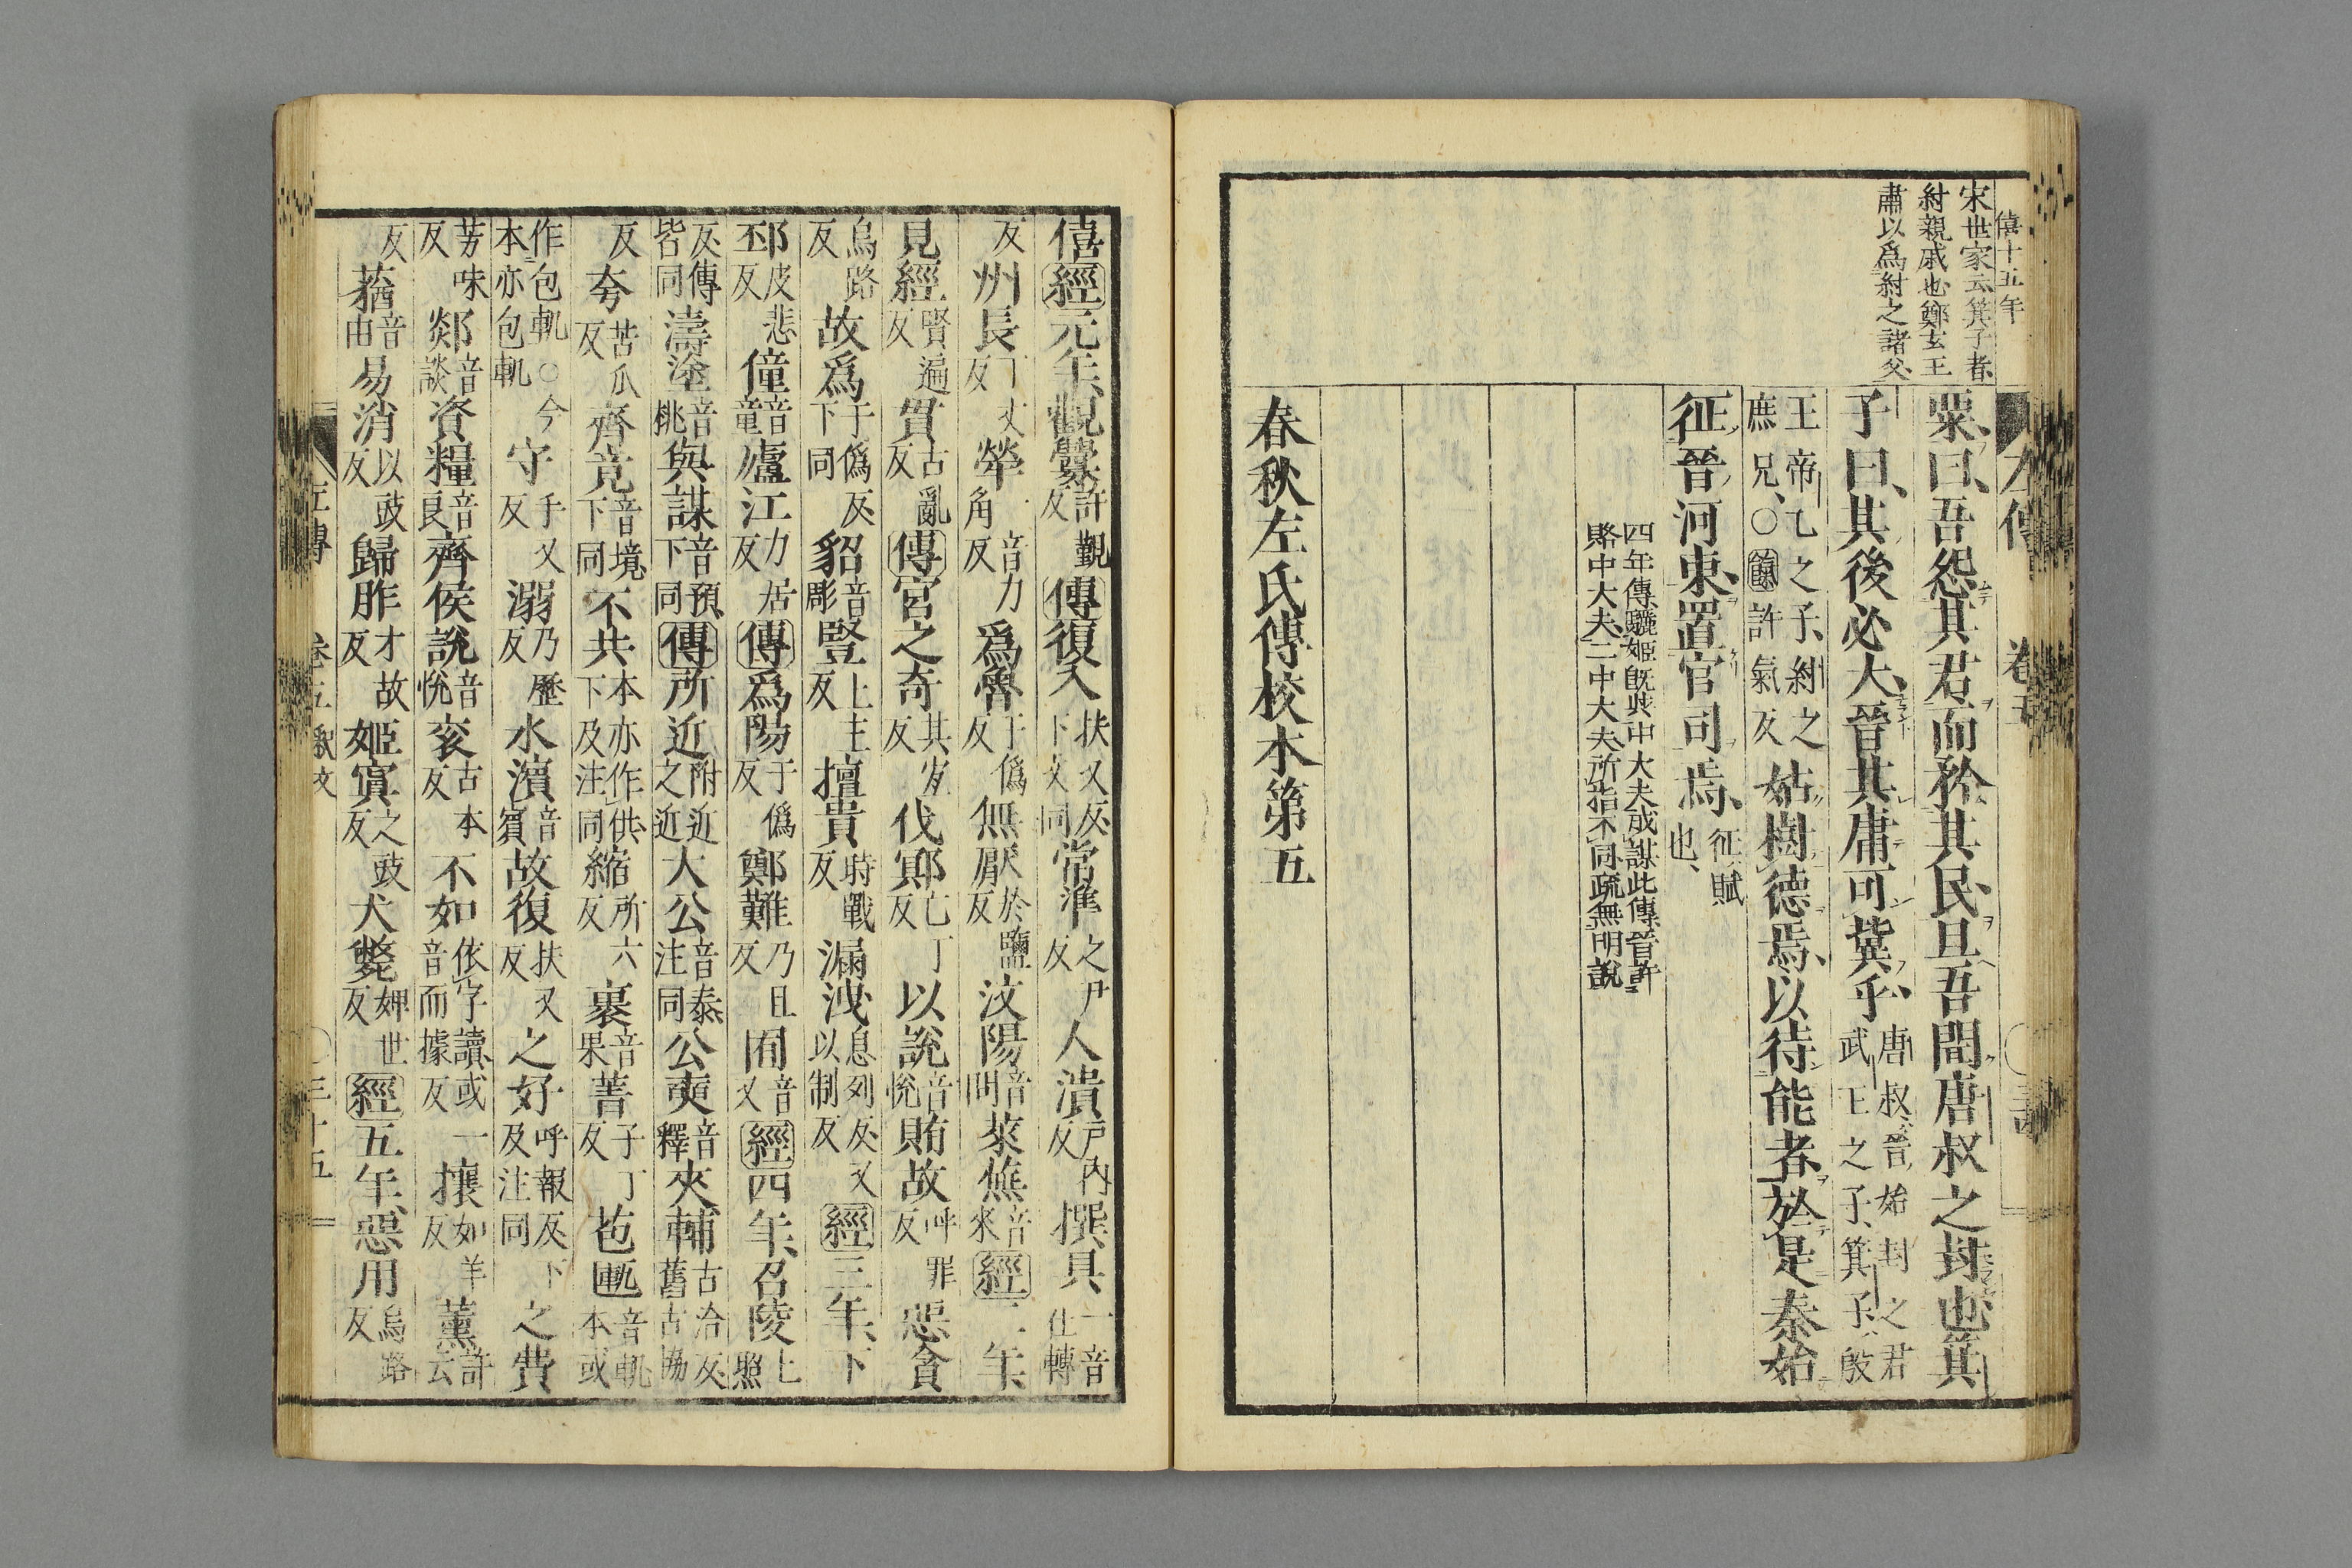 僖十五年
宋世家云箕子者
紂親戚也鄭玄王
肅以爲紂之諸父
粟曰吾怨其君而矜其民且吾聞唐叔之封也箕
子曰其後必大晉其庸可冀乎唐叔晉始封之君武王之子箕子殷
王帝乙之子紂之庶兄○冀許氣反姑樹德焉以待能者於是秦始
征晉河東置官司焉征賦也
四年傳驪姬旣與中大夫成謀此傳晉許
賂中大夫二中大夫所指不同疏無明說
春秋左氏傳校本第五
僖經元年觀釁許覲反傳復入扶又反下文同常準之尹反人潰戶內反撰具一音仕轉
反州長丁丈反犖一音力角反爲魯于僞反無厭於鹽反汶陽音問萊蕪音來經二年
見經賢遍反貫古亂反傳宮之奇其宜反伐鄍亡丁反以說音悅賄故呼罪反惡貪
烏路反故爲于僞反下同貂音彫豎上主反擅貴時戰反漏洩息列反又以制反經三年下
邳皮悲反僮音童廬江力居反傳爲陽于僞反鄭難乃旦反囿音又經四年召陵上照
反傳皆同濤塗音桃與謀音預下同傳所近附近之近大公音泰注同公奭音釋夾輔古洽反舊古協
反夸苦瓜反齊竟音境下同不共本亦作供下及注同縮所六反裹音果菁子丁反苞匭音軌本或
作包軌○今本亦包軌守手又反溺乃歷反水濱音賓故復扶又反之好呼報反下及注同之費
芳味反郯音談資糧音良齊侯說音悅衮古本反不如依字讀或音而據反一攘如羊反薰許云
反蕕音由易消以豉反歸胙才故反姬寘之豉反犬斃婢世反經五年惡用烏路反